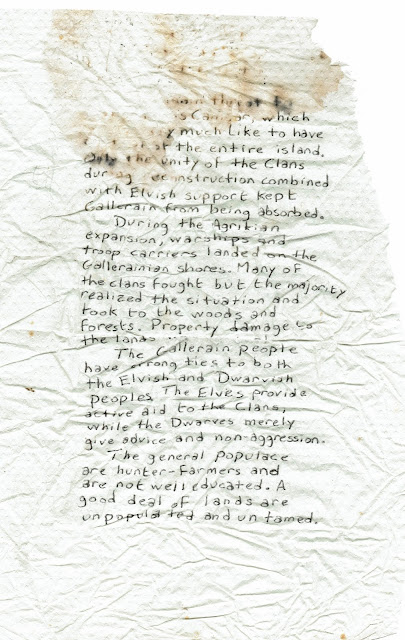 threat
which
much like to have
the entire island.
Only the unity of the Clans
during reconstruction combined
with Elvish support kept
Gallerain from being absorbed.
During the Agrikian
expansion, warships and
troop carriers landed on the
Gallerainian shores. Many of
the clans fought but the majority
realized the situation and
took to the woods and
forests. Property damage to
the lands
The Gallerain people
have strong ties to both
the Elvish and Dwarvish
peoples. The Elves provide
active aid to the Clans,
while the Dwarves merely
give advice and non-aggression.
The general populace
are hunter-farmers and
are not well educated. A
good deal of lands are
unpopulated and untamed.